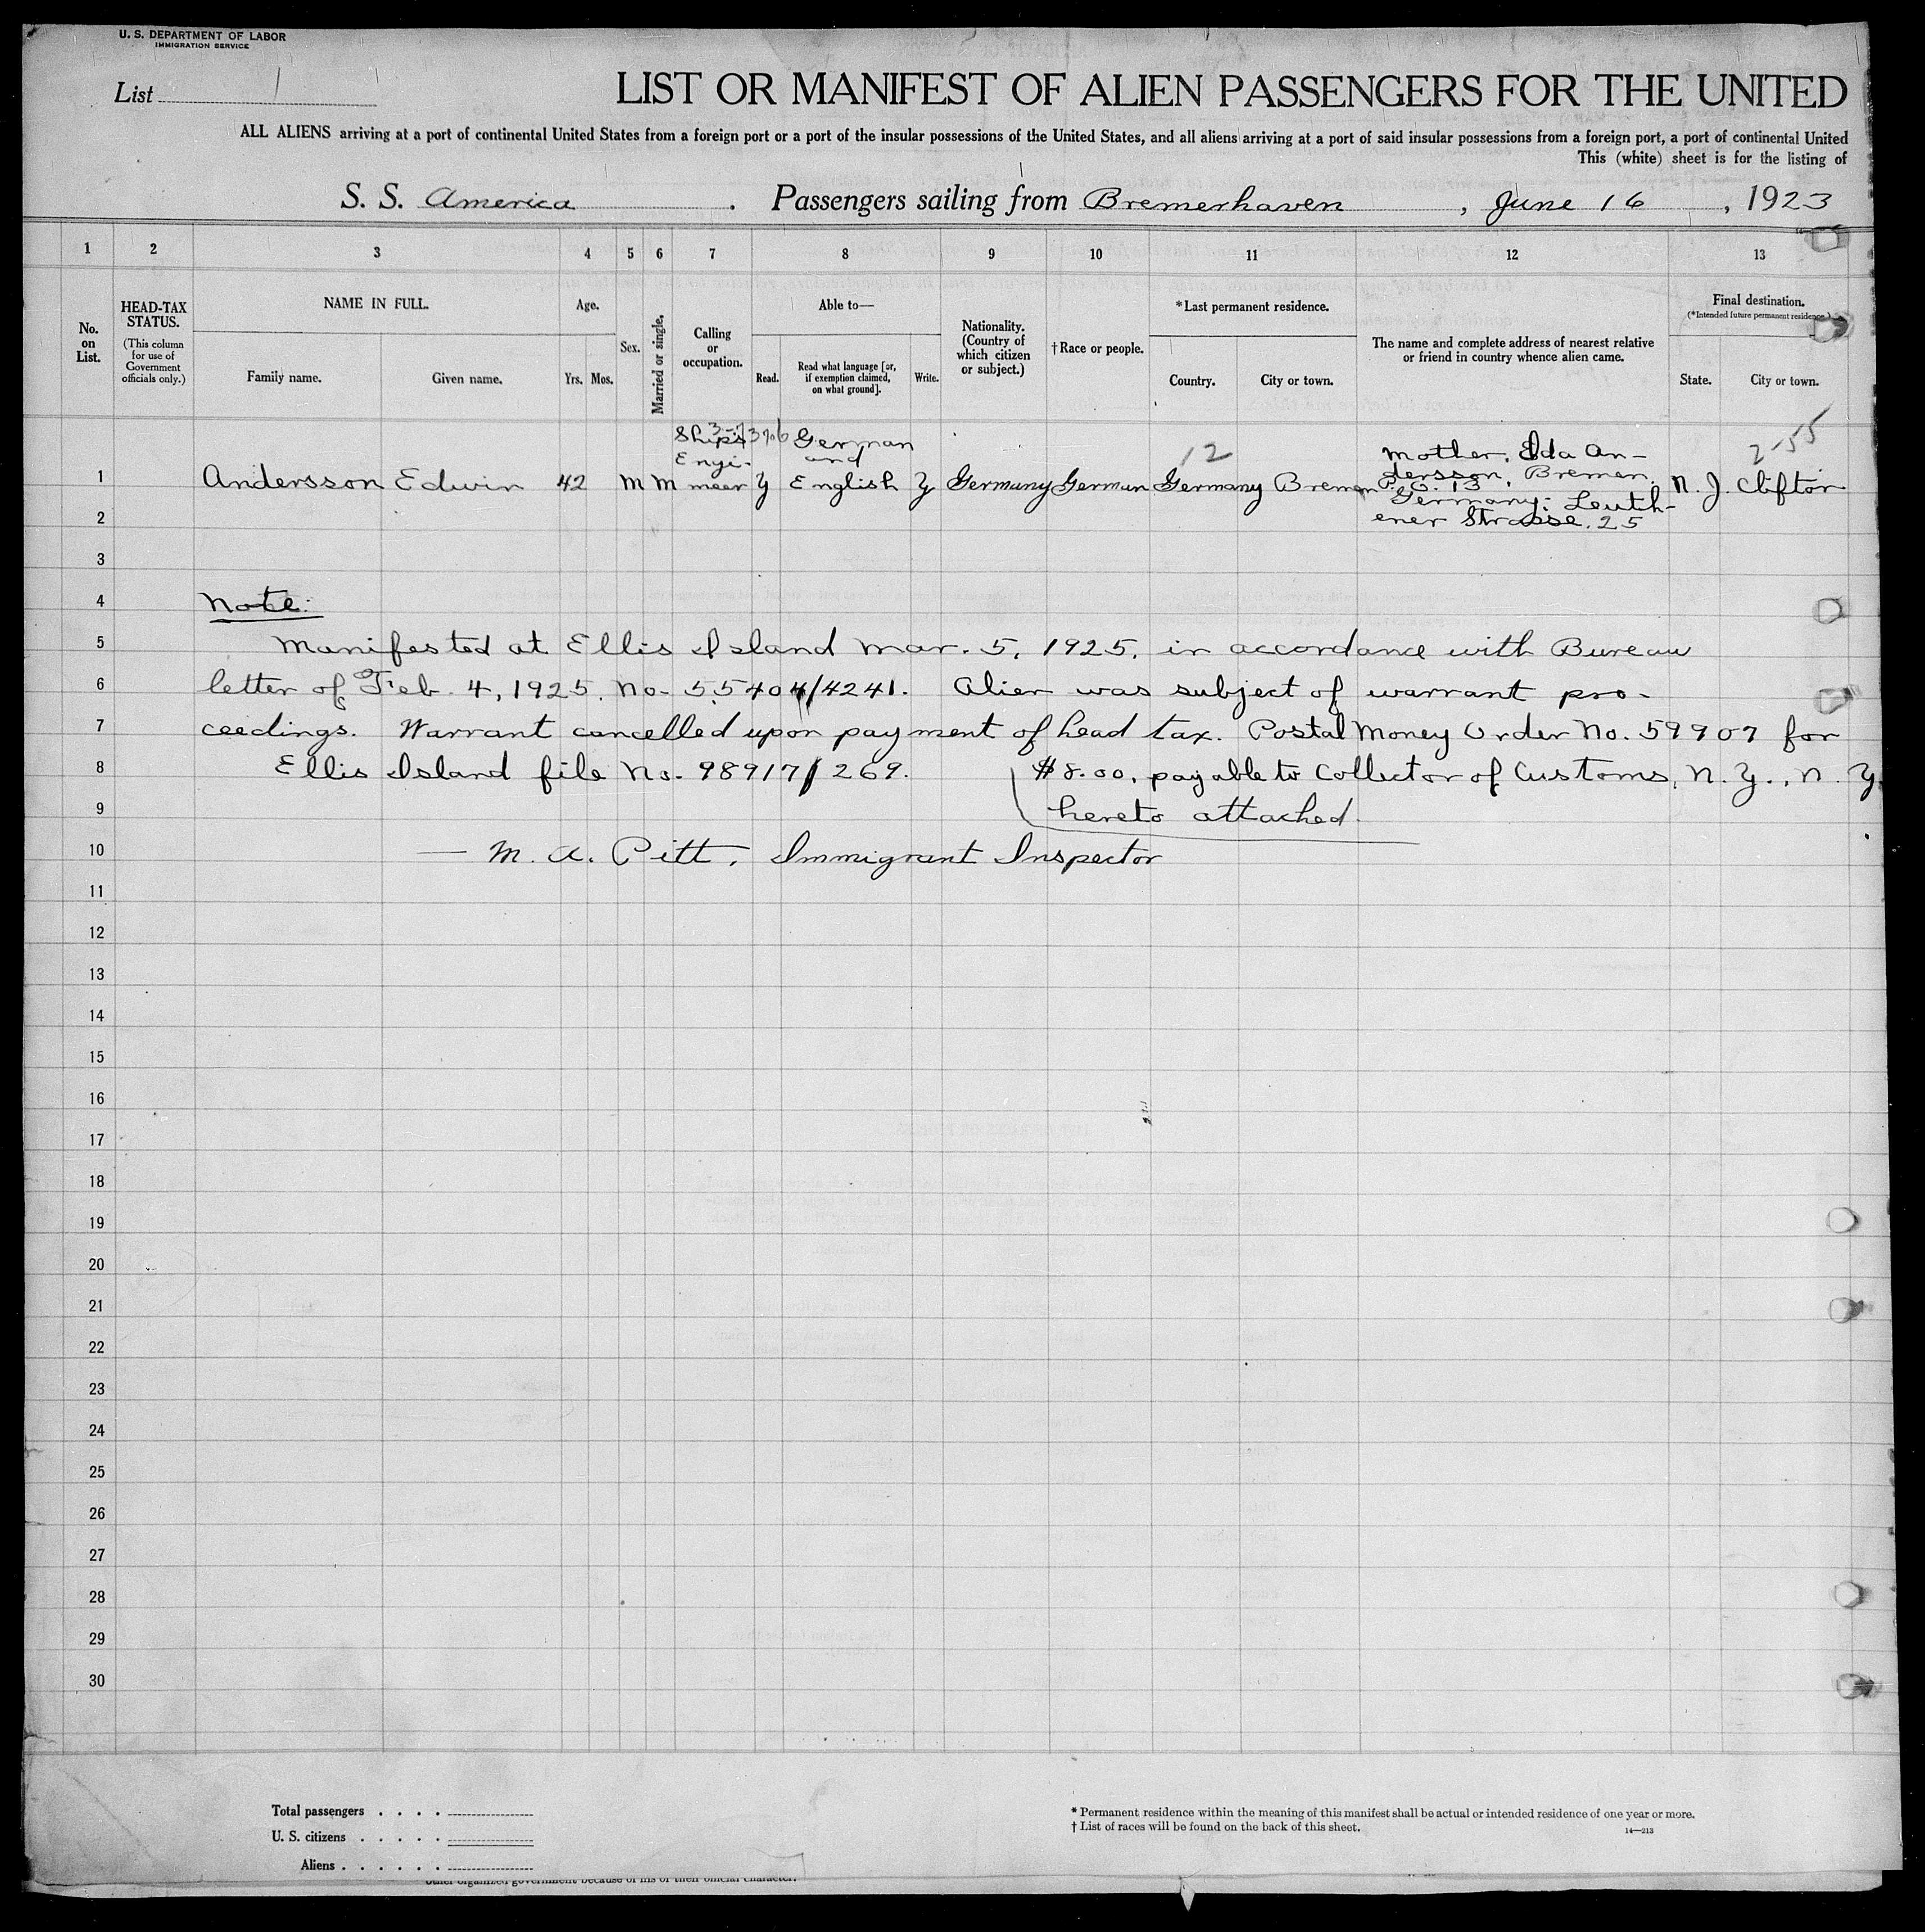 U. S. DEPARTMENT OF LABOR
IMMIGRATION SERVICE
List 1
LIST OR MANIFEST OF ALIEN PASSENGERS FOR THE UNITED
ALL ALIENS arriving at a port of continental United States from a foreign port or a port of the insular possessions of the United States, and all aliens arriving at a port of said insular possessions from a foreign port, a port of continental United
This (white) sheet is for the listing of
S. S. America . Passengers sailing from Bremerhaven , June 16 , 1923
1 2 3 4 5 6 7 8 9 10 11 12 13
No. on List.
HEAD-TAX STATUS.
(This column for use of Government officials only.)
NAME IN FULL.
Family name. Given name.
Age.
Yrs. Mos.
Sex.
Married or single.
Calling or occupation.
Able to—
Read. Read what language [or, if exemption claimed, on what ground]. Write.
Nationality. (Country of which citizen or subject.)
†Race or people.
*Last permanent residence.
Country. City or town.
The name and complete address of nearest relative or friend in country whence alien came.
Final destination.
(*Intended future permanent residence.)
State. City or town.
1 Andersson Edwin 42 M M Ship's Engi- neer Y German and English Y Germany German Germany Bremen
12
Mother, Ida An-
dersson, Bremen,
P.O. 13,
Germany: Leuth-
ener Strasse, 25
N. J. Clifton
2-55
2
3
4 Note:
5 Manifested at Ellis Island Mar. 5, 1925, in accordance with Bureau
6 letter of Feb. 4, 1925, No. 55404/4241. Alien was subject of warrant pro-
7 ceedings. Warrant cancelled upon payment of head tax. Postal Money Order No. 59907 for
8 Ellis Island file No. 98917/269. $8.00, payable to Collector of Customs, N. Y., N. Y.
9 hereto attached.
10 — M. A. Pitt, Immigrant Inspector
11
12
13
14
15
16
17
18
19
20
21
22
23
24
25
26
27
28
29
30
Total passengers . . . .
U. S. citizens . . . . .
Aliens . . . . . .
* Permanent residence within the meaning of this manifest shall be actual or intended residence of one year or more.
† List of races will be found on the back of this sheet.
14—213
other organized government because of his or their official character.